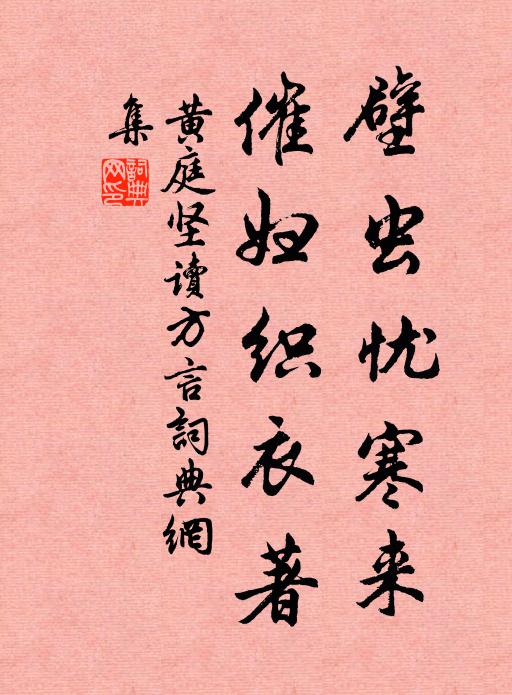 壁虫忧寒来
催妇织衣著
黄庭坚读方言詞典網
集
詞典网印